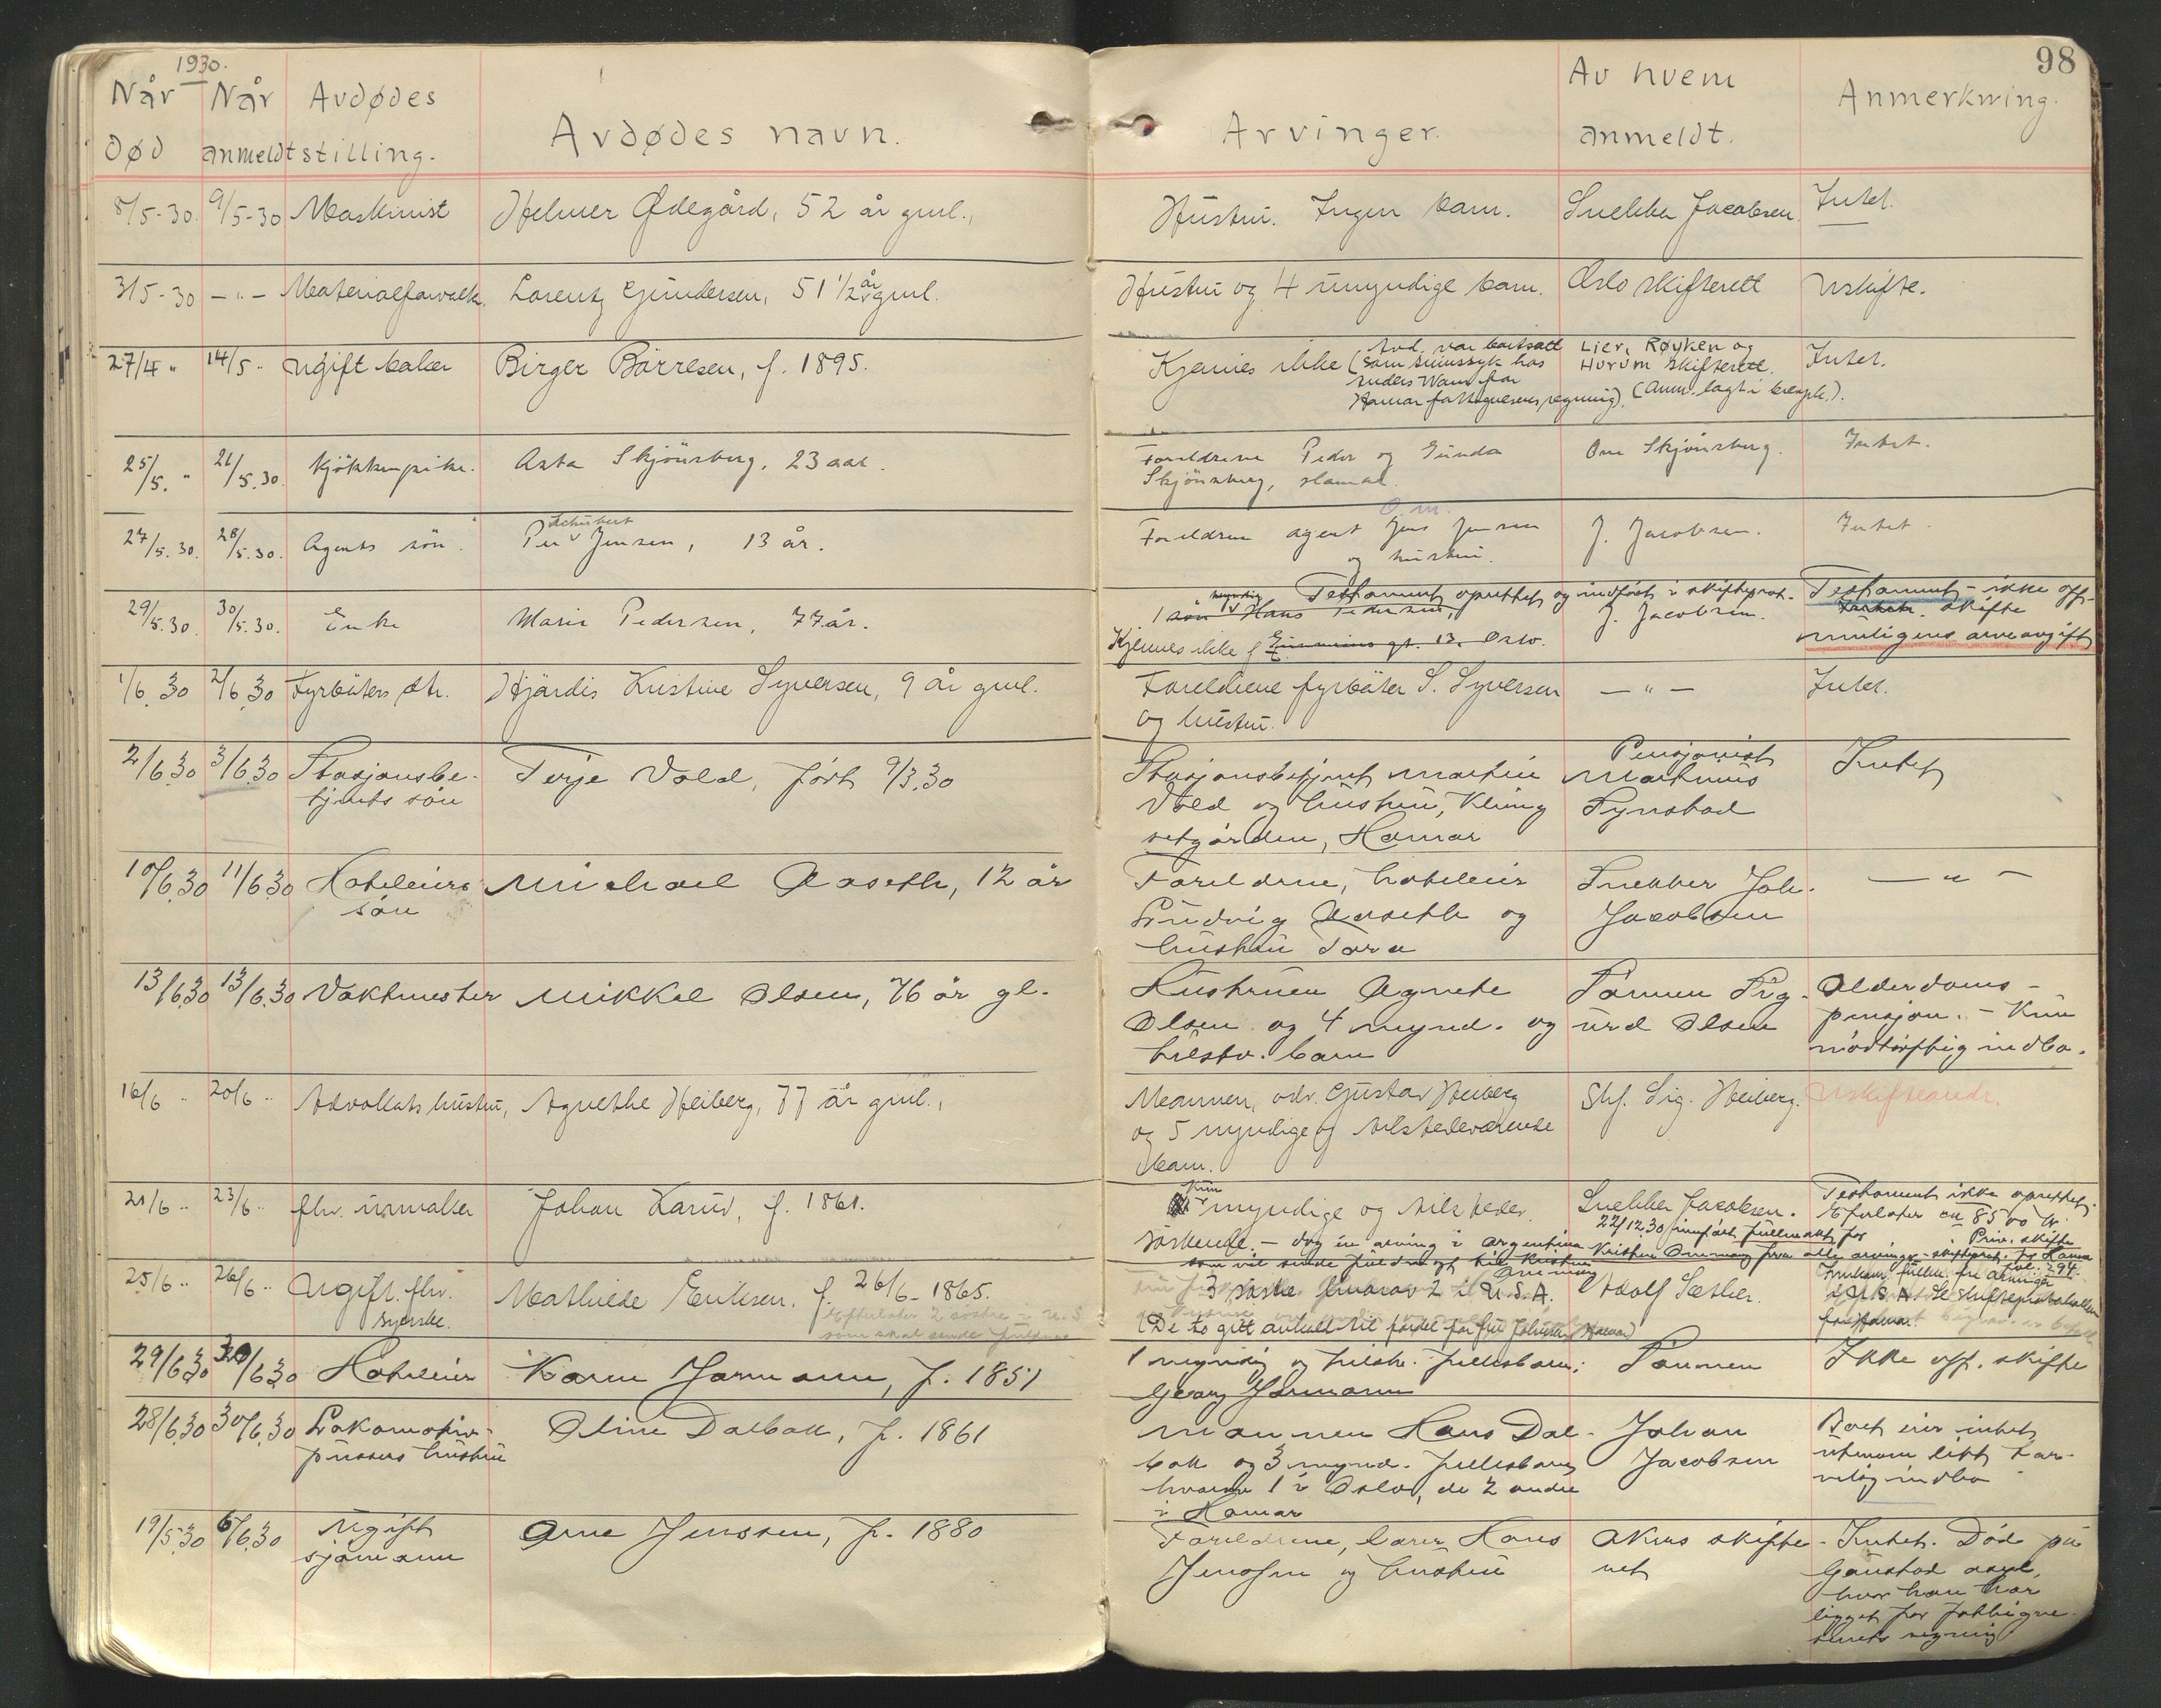 1930.
98
Når død
Når anmeldt
Avdødes stilling.
Avdødes navn.
Arvinger.
Av hvem anmeldt.
Anmerkning.
8/5-30. 9/5-30 Maskinist Helmer Ødegård, 52 år gml., Hustru. Ingen barn. Snekker Jacobsen. Intet.
3/5-30 -"- Materialforvalt. Lorentz Gundersen, 51 1/2 år gml. Hustru og 4 umyndige barn. Oslo skifterett Uskifte.
27/4 " 14/5 " Ugift baker Birger Börresen, f. 1895. Kjennes ikke (Avd. var bortsatt
som sinnssyk hos
for
Hamar fattigvesens regning). Lier, Røyken og
Hurum skifterett.
(Anm. lagt i ). Intet.
25/5. " 26/5.30. Kjökkenpike. Asta Skjönsberg, 23 aar. Foreldrene Peder og Gunda
Skjönsberg, Hamar. Ove Skjönsberg. Intet.
27/5.30. 28/5.30. Agents sön. Per Schubert Jensen, 13 år. Foreldrene agent Jens Jensen
O.m.
og hustru. J. Jacobsen. Intet.
29/5.30. 30/5.30. Enke Marie Pedersen, 77 år. Testament oprettet og indført i skifteprot.
1 myndig sön Hans Pedersen,
Kjennes ikke gt. 13. Oslo. J. Jacobsen. Testament - ikke off.
Intet. skifte
muligens arveavgift
1/6.30 2/6.30 Fyrbøters dtr. Hjärdis Kristine Syversen, 9 år gml. Foreldrene fyrbøter S. Syversen
og hustru. -"- Intet.
2/6.30 3/6.30 Stasjonsbe-
tjents sön Terje Vold, født 9/3.30 Stasjonsbetjent Martin
Vold og hustru, Kling
setgården, Hamar Pensjonist
Martinius
Synstad Intet
10/6.30 11/6.30 Hoteleiers
sön Michael Aaseth, 12 år Foreldrene, hoteleier
Ludvig Aaseth og
hustru Tora Snekker Joh.
Jacobsen -"-
13/6.30 13/6.30 Vaktmester Mikkel Olsen, 76 år gl. Hustruen Agnete
Olsen og 4 mynd. og
tilstv. barn Sönnen Sig-
urd Olsen Alderdoms-
pensjon. - Kun
nödtörftig indbo.
16/6 " 20/6 " Advokats hustru, Agnethe Heiberg, 77 år gml., Mannen, adv. Gustav Heiberg
og 5 myndige og tilstedeværende
barn. Skf. Sig. Heiberg. Uskifteandr.
21/6 " 23/6 " fhv. urmaker Johan Karud, f. 1861. Kun
myndige og tilsteder.
söskende. - dog én arving i Argentina
som vil sende fuldmagt til Kristian Snekker Jacobsen.
22/12.30 innført fullmakt for
Testament ikke oprettet.
Efterlater ca 8500 kr.
Priv. skifte
25/6 " 26/6 " Ugift. fhv.
syerske. Mathilde Eriksen. f. 26/6-1865.
Efterlater 2 söstre i U.S.
3 søstre hvorav 2 i U.S.A.
(De to gitt avkall til fordel for fru Hamar) Adolf Sæther.
fol. 294.
fra arvinger
i U.S.A. Se skifteprotokollen
for Hamar.
29/6.30 30/6.30 Hoteleier Karen Jormann, f. 1851 1 myndig og tilstv. fellesbarn:
Georg Jormann Sönnen Ikke off. skifte
28/6.30 30/6.30 Lokomotiv-
pussers hustru Oline Dalbakk, f. 1861 Mannen Hans Dal-
bakk og 3 mynd. fellesbarn
hvorav 1 i Oslo, de 2 andre
i Hamar Johan
Jacobsen Boet eier intet
utenom litt tar-
velig indbo
19/5.30 6/6.30 Ugift
sjömann Arne Jenssen, f. 1880 Foreldrene, lærer Hans
Jenssen og hustru Akers skifte-
rett Intet. Död på
Gaustad asyl,
hvor han har
ligget for fattigve-
senets regning